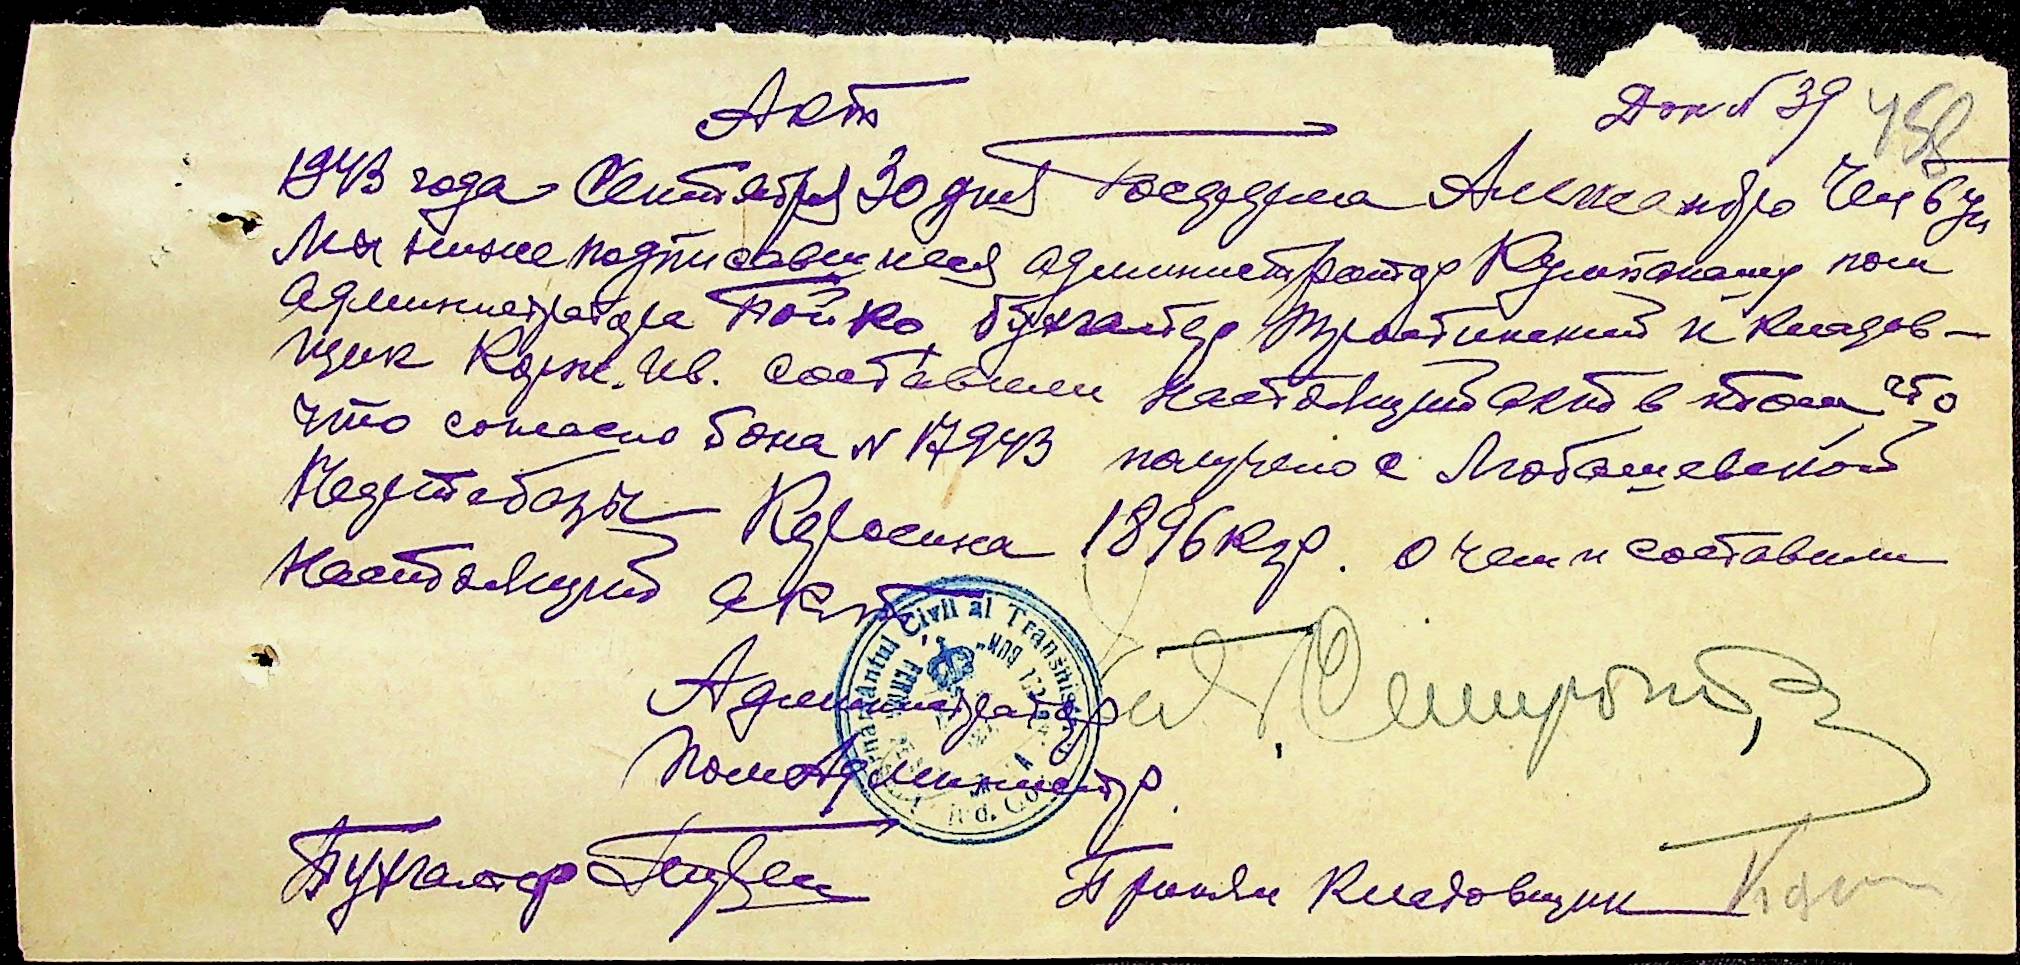 Акт
Док N 39
458
1943 года Сентября 30 дня Госферма Александро
Мы нижеподписавшиеся администратор пом
Администратора Бойко, бухгалтер и кладов-
щик Корж. Ив. составили настоящий акт в том что
что согласно бона N 17943 получено с Любашевской
Нефтебазы Керосина 1896 кгр. о чем и составили
настоящий акт
Администратор
Пом Администр.
Бухгалтер
Принял Кладовщик
Civil al Transnis